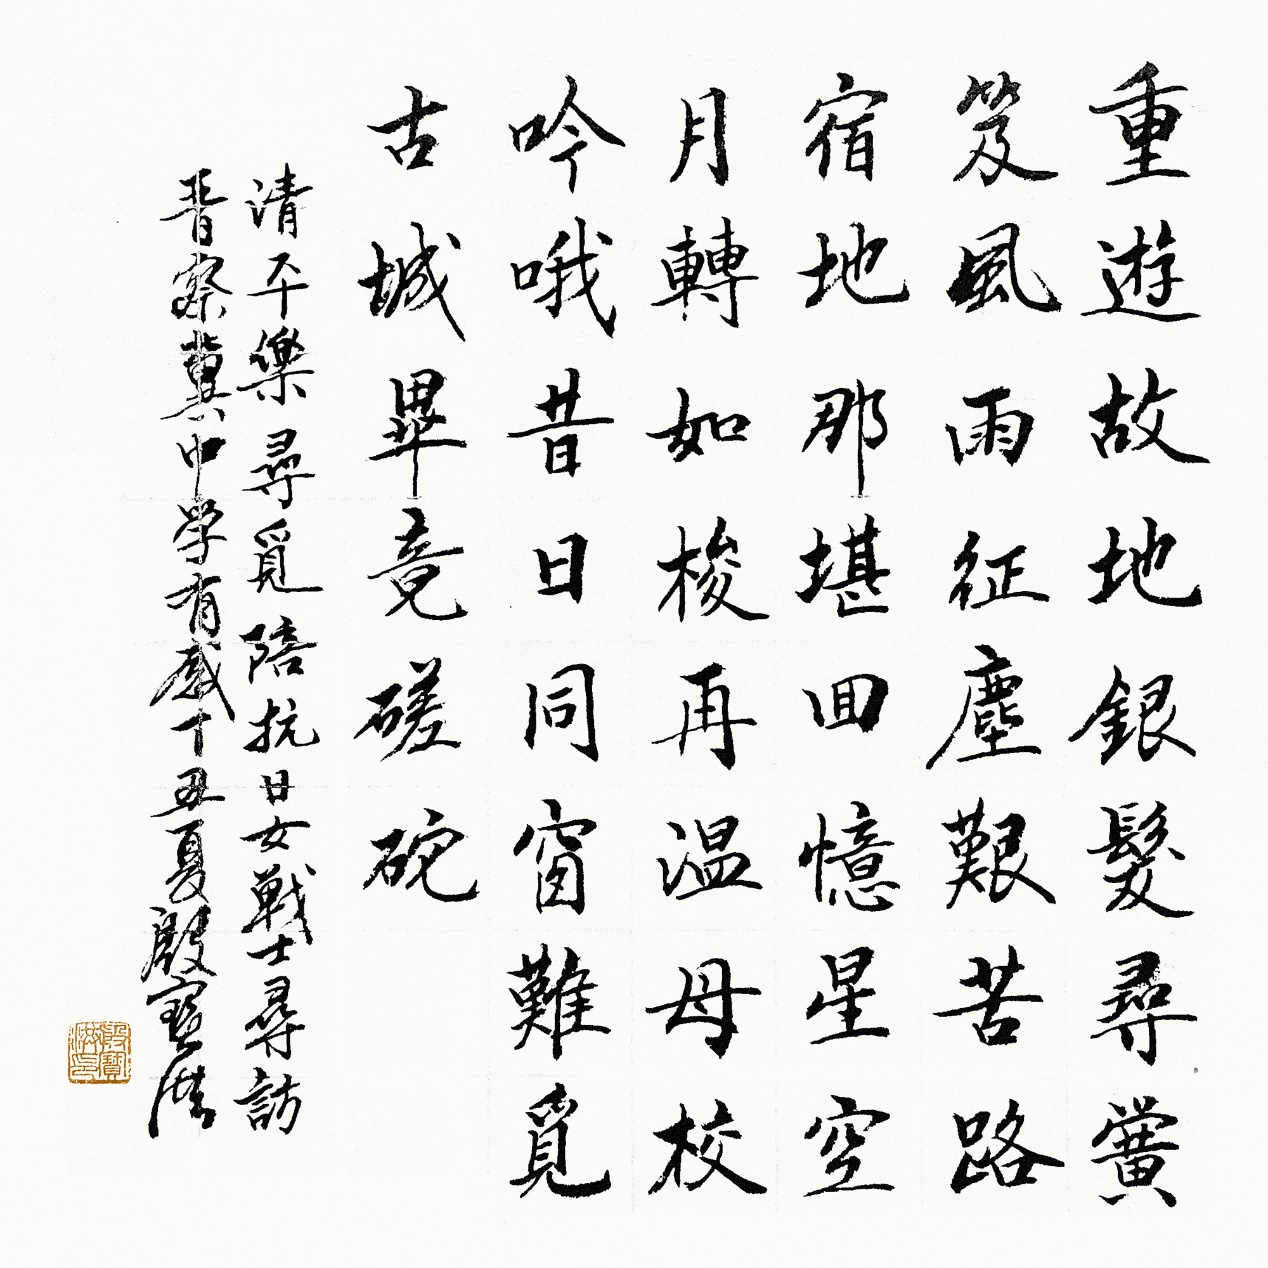 重遊故地銀髮尋黌
笈風雨征塵艱苦路
宿地那堪回憶星空
月轉如梭再溫母校
吟哦昔日同窗難覓
古城畢竟磋砣
清平樂尋覓陪抗日女戰士尋訪
晋察冀中学有感丁丑夏殷寶洪